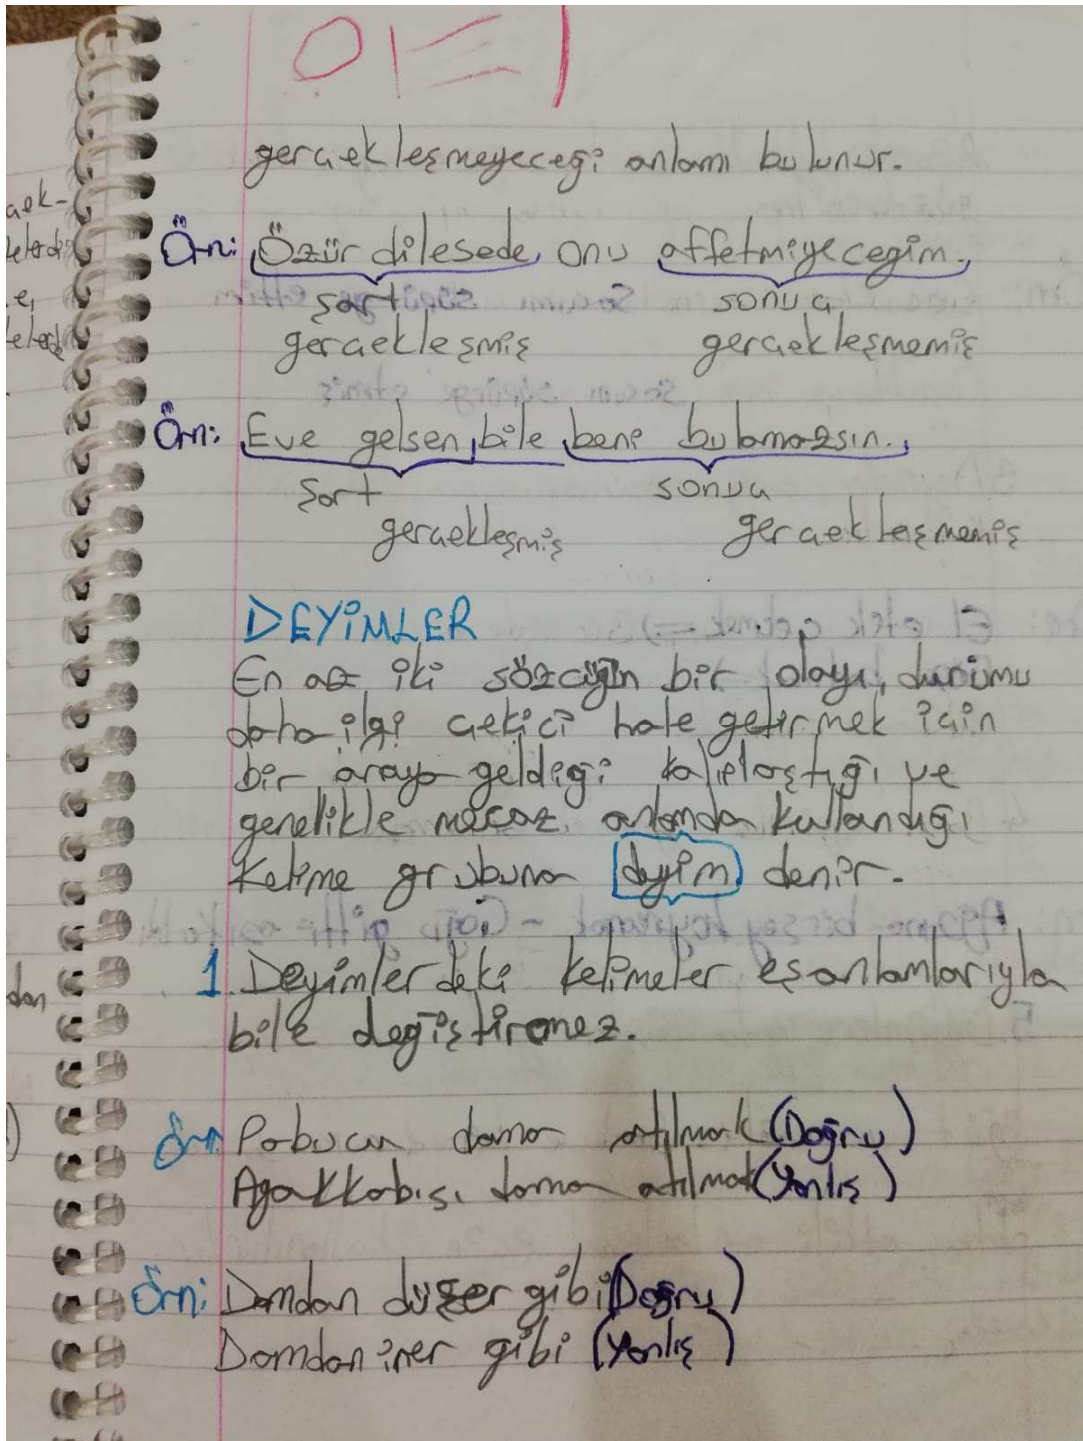 gerçekleşmeyeceği anlamı bulunur.
Örn: Özür dilesede onu affetmiyecegim.
şart sonuç
gerçekleşmiş gerçekleşmemiş
Örn: Eve gelsen bile beni bulamazsın.
şart sonuç
gerçekleşmiş gerçekleşmemiş
DEYİMLER
En az iki sözcüğün bir olayı, durumu
daha ilgi çekici hale getirmek için
bir araya geldiği kalıplaştığı ve
genellikle mecaz anlamda kullandığı
kelime grubuna deyim denir.
1. Deyimlerdeki kelimeler eşanlamlarıyla
bile değiştiremez.
Örn: Pabucu dama atılmak (Doğru)
Ayakkabısı dama atılmak (Yanlış)
Örn: Damdan düşer gibi (Doğru)
Damdan iner gibi (Yanlış)